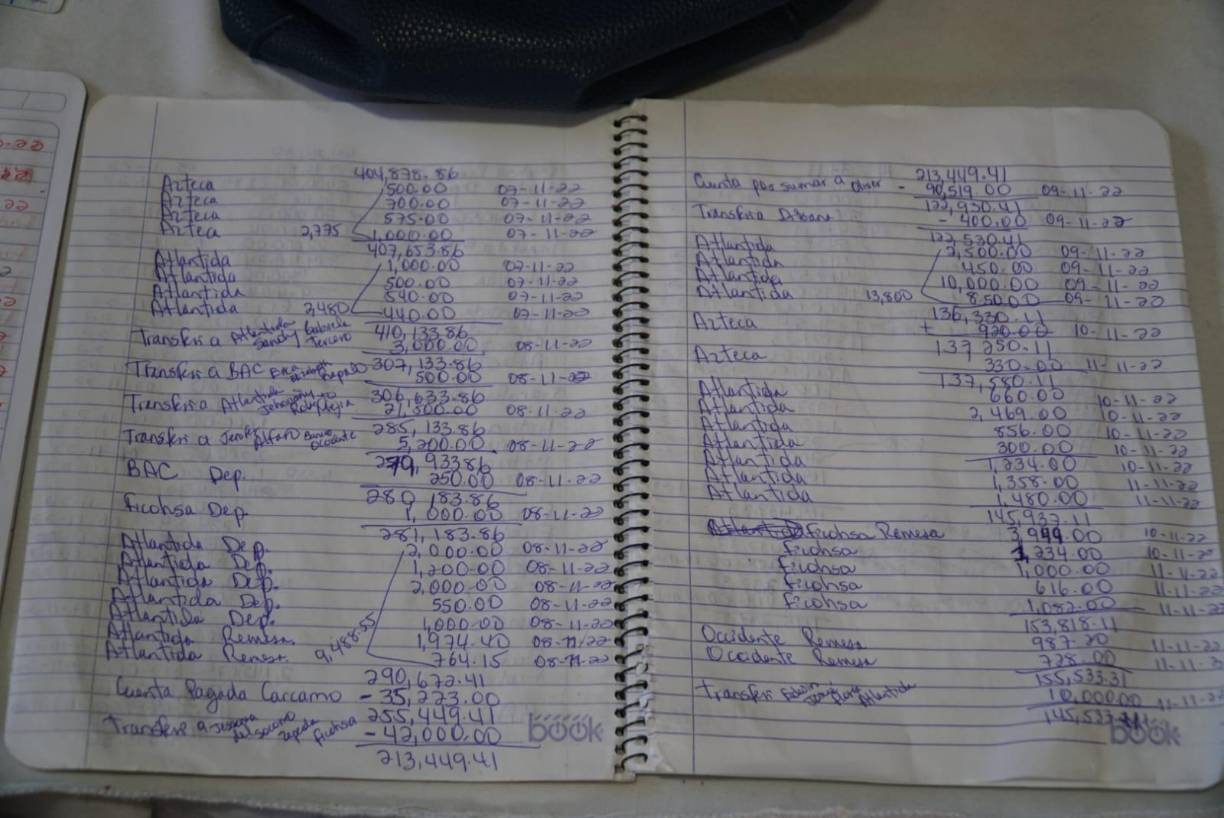 404,878.86
Azteca 500.00 07-11-22
Azteca 700.00 07-11-22
Azteca 575.00 07-11-22
Azteca 2,775 1,000.00 07-11-22
407,653.86
Atlantida 1,000.00 07-11-22
Atlantida 500.00 07-11-22
Atlantida 540.00 07-11-22
Atlantida 2,480 440.00 07-11-22
410,133.86
Transferi a Atlantida Sandy Gabriela 3,000.00 08-11-22
307,133.86
Transferi a BAC 500.00 08-11-22
306,633.86
Transferi a Atlantida 21,500.00 08-11-22
285,133.86
Transferi a 5,200.00 08-11-22
279,933.86
BAC Dep. 250.00 08-11-22
280,183.86
Ficohsa Dep. 1,000.00 08-11-22
281,183.86
Atlantida Dep. 2,000.00 08-11-22
Atlantida Dep. 1,200.00 08-11-22
Atlantida Dep. 2,000.00 08-11-22
Atlantida Dep. 550.00 08-11-22
Atlantida Dep. 1,000.00 08-11-22
Atlantida Remesa 1,974.40 08-11-22
Atlantida Remesa 9,488.55 764.15 08-11-22
290,672.41
Cuenta Pagada Carcamo -35,223.00
255,449.41
Transferi a Ficohsa -42,000.00
213,449.41
book
213,449.41
Cuenta por sumar a - 90,519.00 09-11-22
122,930.41
Transferi a - 400.00 09-11-22
122,530.41
Atlantida 2,500.00 09-11-22
Atlantida 450.00 09-11-22
Atlantida 10,000.00 09-11-22
Atlantida 13,800 850.00 09-11-22
136,330.11
Azteca + 920.00 10-11-22
137,250.11
Azteca 330.00 11-11-22
137,580.11
Atlantida 660.00 10-11-22
Atlantida 2,469.00 10-11-22
Atlantida 856.00 10-11-22
Atlantida 300.00 10-11-22
Atlantida 1,234.00 10-11-22
Atlantida 1,358.00 11-11-22
Atlantida 1,480.00 11-11-22
145,937.11
Ficohsa Remesa 3,949.00 10-11-22
Ficohsa 1,234.00 10-11-22
Ficohsa 1,000.00 11-11-22
Ficohsa 616.00 11-11-22
Ficohsa 1,082.00 11-11-22
153,818.11
Occidente Remesa 987.20 11-11-22
Occidente Remesa 728.00 11-11-22
155,533.31
Transferi Atlantida 10,000.00 11-11-22
145,533.31
book